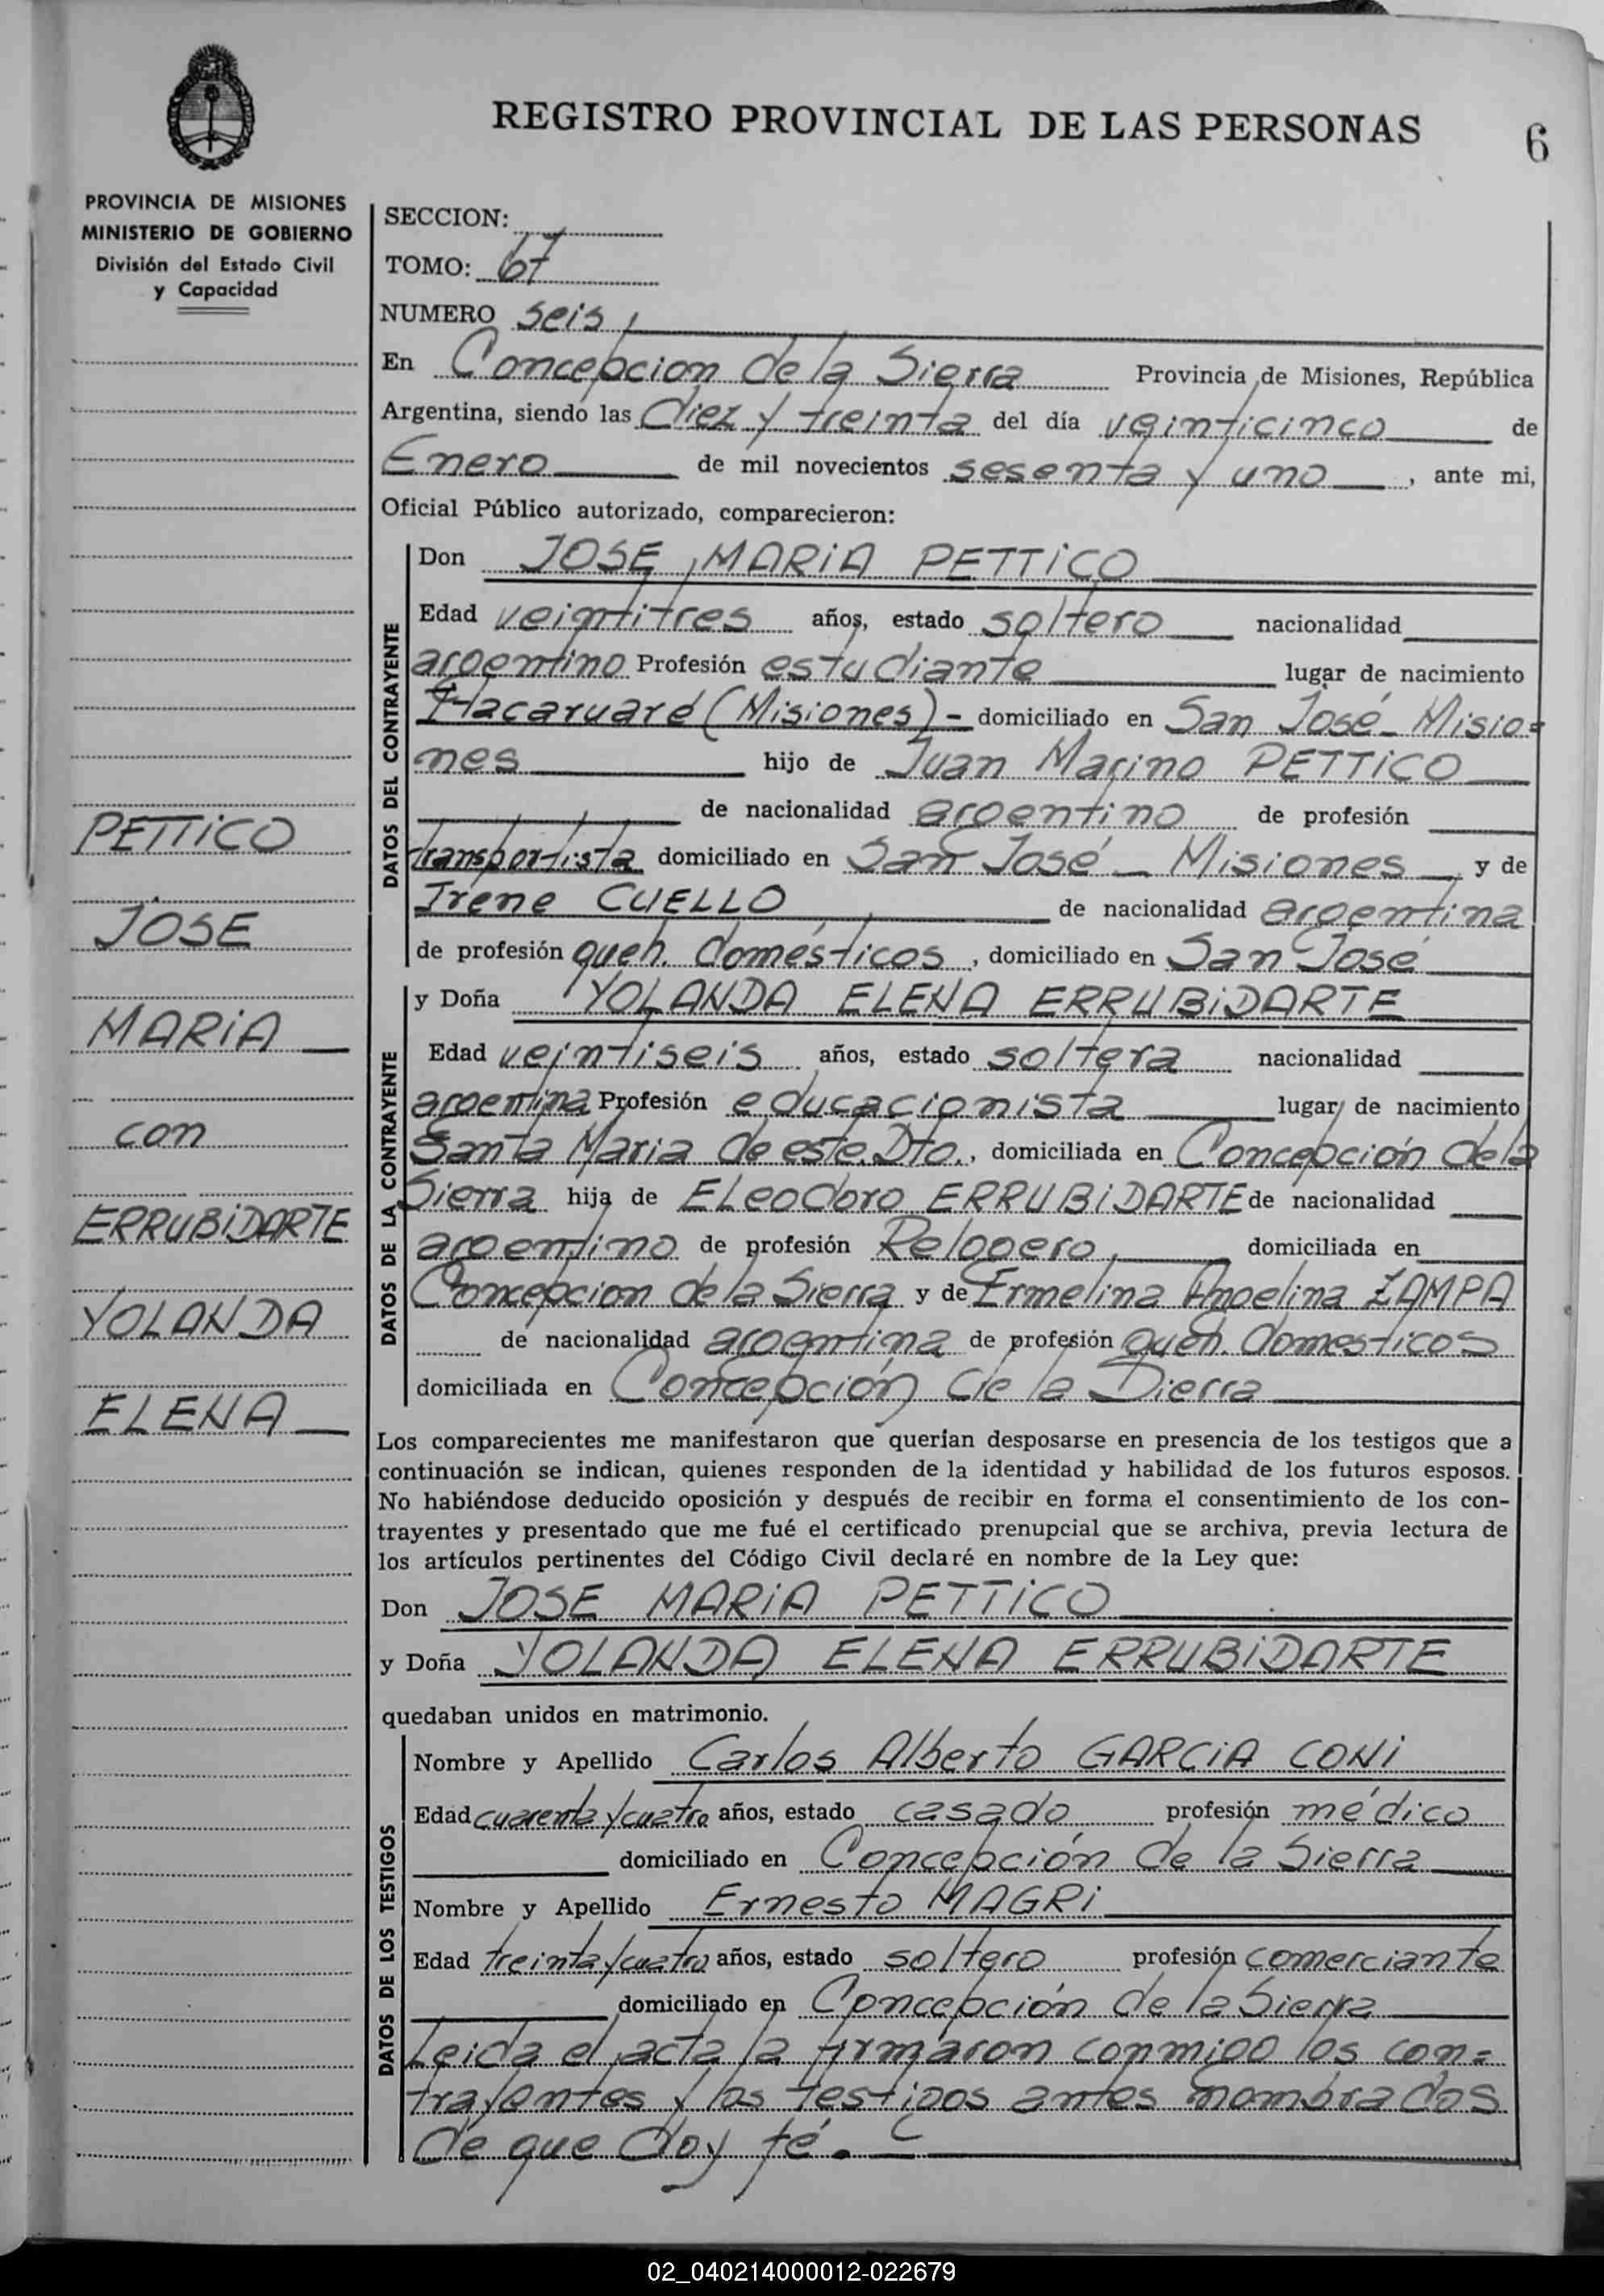 REGISTRO PROVINCIAL DE LAS PERSONAS
6
PROVINCIA DE MISIONES
MINISTERIO DE GOBIERNO
División del Estado Civil
y Capacidad
PETTiCO
JOSE
MARiA
con
ERRUBiDARTE
YOLANDA
ELENA
SECCION:
TOMO: 67
NUMERO seis
En Concepcion de la Sierra Provincia de Misiones, República
Argentina, siendo las diez y treinta del día veinticinco de
Enero de mil novecientos sesenta y uno, ante mi,
Oficial Público autorizado, comparecieron:
DATOS DEL CONTRAYENTE
Don JOSE MARiA PETTiCO
Edad veintitres años, estado soltero nacionalidad
argentino Profesión estudiante lugar de nacimiento
Itacaruaré (Misiones) - domiciliado en San José - Misio=
nes hijo de Juan Marino PETTiCO
de nacionalidad argentino de profesión
transportista domiciliado en San José - Misiones y de
Irene CUELLO de nacionalidad argentina
de profesión queh. domésticos, domiciliado en San José
DATOS DE LA CONTRAYENTE
y Doña YOLANDA ELENA ERRUBiDARTE
Edad veintiseis años, estado soltera nacionalidad
argentina Profesión educacionista lugar de nacimiento
Santa Maria de este Dto., domiciliada en Concepción de la
Sierra hija de ELeodoro ERRUBiDARTE de nacionalidad
argentino de profesión Relogero, domiciliada en
Concepcion de la Sierra y de Ermelina Angelina ZAMPA
de nacionalidad argentina de profesión queh. domesticos
domiciliada en Concepción de la Sierra
Los comparecientes me manifestaron que querían desposarse en presencia de los testigos que a
continuación se indican, quienes responden de la identidad y habilidad de los futuros esposos.
No habiéndose deducido oposición y después de recibir en forma el consentimiento de los con-
trayentes y presentado que me fué el certificado prenupcial que se archiva, previa lectura de
los artículos pertinentes del Código Civil declaré en nombre de la Ley que:
Don JOSE MARiA PETTiCO
y Doña YOLANDA ELENA ERRUBiDARTE
quedaban unidos en matrimonio.
DATOS DE LOS TESTIGOS
Nombre y Apellido Carlos Alberto GARCiA CONi
Edad cuarenta y cuatro años, estado casado profesión médico
domiciliado en Concepción de la Sierra
Nombre y Apellido Ernesto MAGRi
Edad treinta y cuatro años, estado soltero profesión comerciante
domiciliado en Concepción de la Sierra
Leida el acta la firmaron conmigo los con=
trayentes y los testigos antes nombrados
de que doy fé. -
02_040214000012-022679